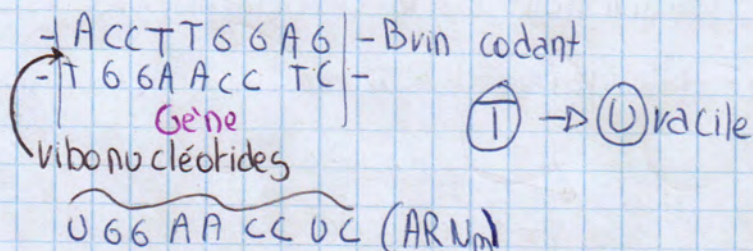 -|ACCTTGGAG|- Brin codant
-|TGGAACCTC|-
Gène
T → Uracile
ribonucléotides
UGGAACCUC (ARNm)